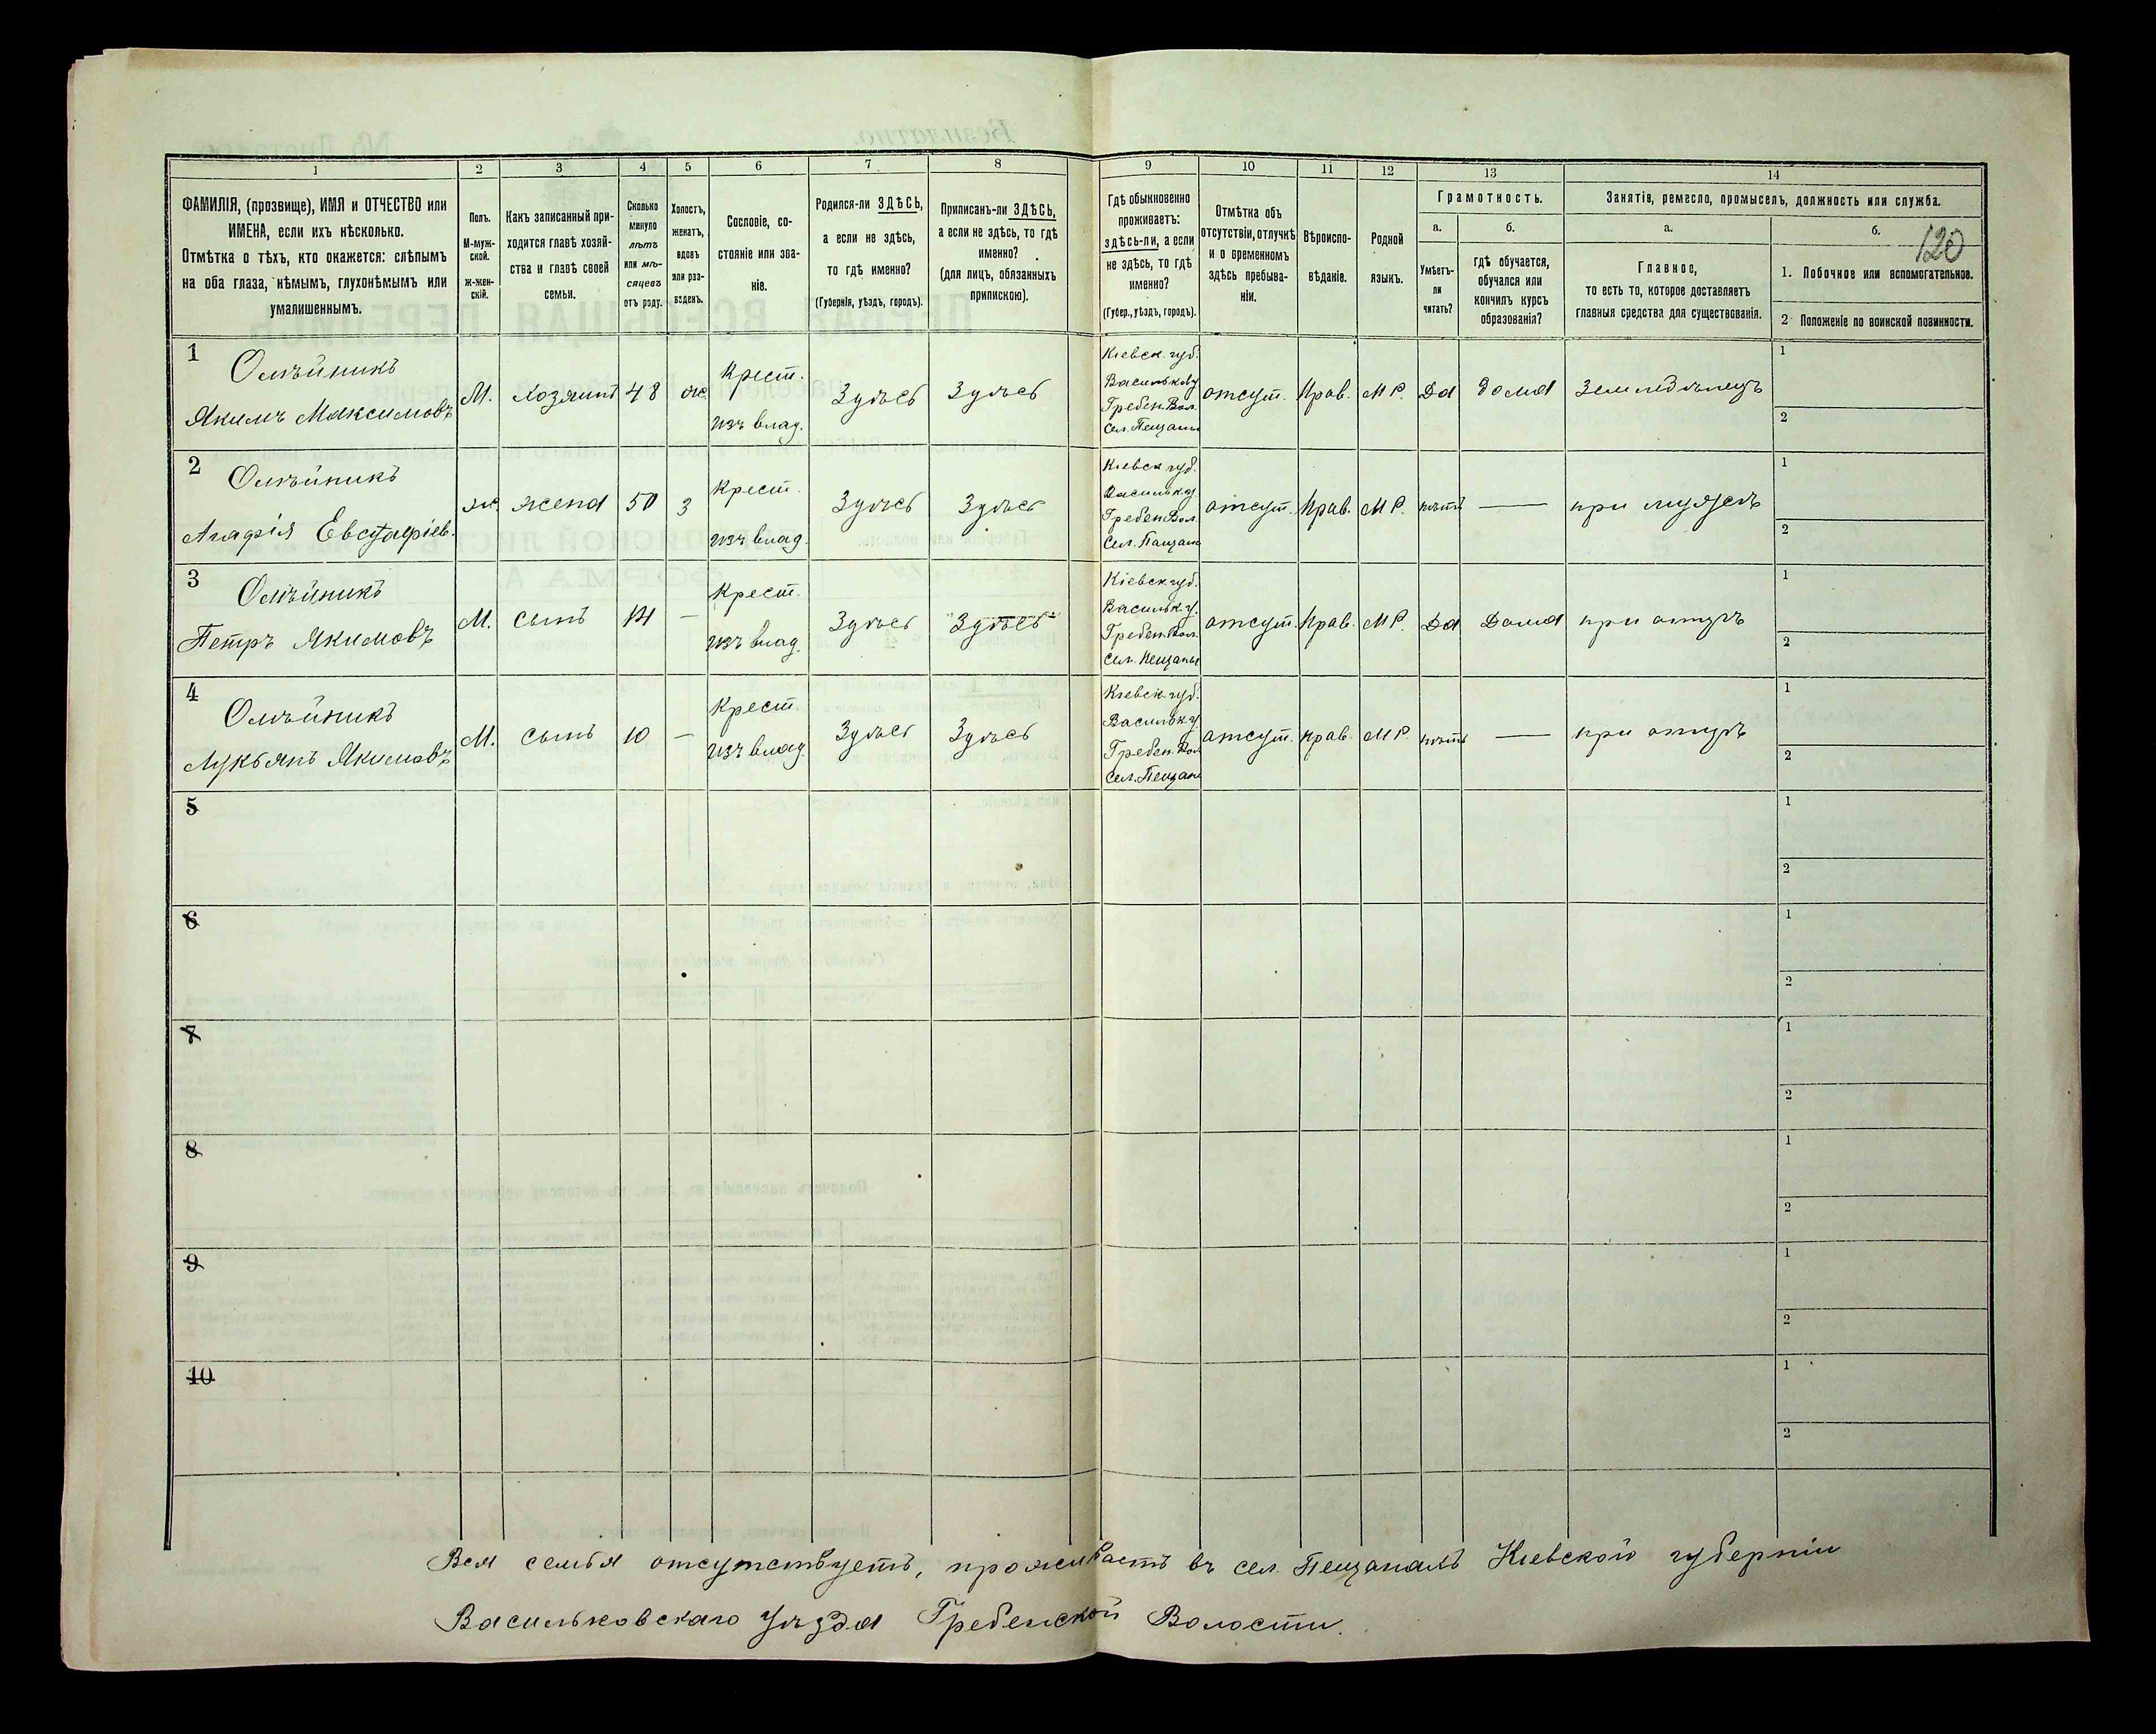 120
1 2 3 4 5 6 7 8 9 10 11 12 13 14
ФАМИЛІЯ, (прозвище), ИМЯ и ОТЧЕСТВО или
ИМЕНА, если ихъ нѣсколько.
Отмѣтка о тѣхъ, кто окажется: слѣпымъ
на оба глаза, нѣмымъ, глухонѣмымъ или
умалишеннымъ.
Полъ.
М-муж-
ской.
ж-жен-
скій.
Какъ записанный при-
ходится главѣ хозяй-
ства и главѣ своей
семьи.
Сколько
минуло
лѣтъ
или мѣ-
сяцевъ
отъ роду.
Холостъ,
женатъ,
вдовъ
или раз-
веденъ.
Сословіе, со-
стояніе или зва-
ніе.
Родился-ли ЗДѢСЬ,
а если не здѣсь,
то гдѣ именно?
(Губернія, уѣздъ, городъ).
Приписанъ-ли ЗДѢСЬ,
а если не здѣсь, то гдѣ
именно?
(для лицъ, обязанныхъ
припискою).
Гдѣ обыкновенно
проживаетъ:
здѣсь-ли, а если
не здѣсь, то гдѣ
именно?
(Губер., уѣздъ, городъ).
Отмѣтка объ
отсутствіи, отлучкѣ
и о временномъ
здѣсь пребыва-
ніи.
Вѣроиспо-
вѣданіе.
Родной
языкъ.
Грамотность.
а.
Умѣетъ-
ли
читать?
б.
гдѣ обучается,
обучался или
кончилъ курсъ
образованія?
Занятія, ремесло, промыселъ, должность или служба.
а.
Главное,
то есть то, которое доставляетъ
главныя средства для существованія.
б.
1. Побочное или вспомогательное.
2 Положеніе по воинской повинности.
1
Олѣйникъ
Якимъ Максимовъ
М.
Хозяинъ
48
ж.
Крест.
изъ влад.
Здѣсь
Здѣсь
Кіевск. губ.
Васильков у
Гребен. Вол.
Сел. Пещаны
отсут.
Прав.
М Р.
Да
дома
Земледѣлецъ
1
2
2
Олѣйникъ
Агафія Евстафіев.
ж.
жена
50
З
Крест.
изъ влад.
Здѣсь
Здѣсь
Кіевск губ.
Васильк у.
Гребен Вол.
Сел. Пещаны
отсут.
Прав.
М Р.
нѣтъ
—
при мужѣ
1
2
3
Олѣйникъ
Петръ Якимовъ
М.
сынъ
14
—
Крест.
изъ влад.
Здѣсь
Здѣсь
Кіевск губ.
Васильк. у.
Гребен. Вол.
Сел. Пещаны
отсут.
Прав.
М Р.
Да
Дома
при отцѣ
1
2
4
Олѣйникъ
Лукьянъ Якимовъ
М.
сынъ
10
—
Крест.
изъ влад.
Здѣсь
Здѣсь
Кіевск. губ.
Васильк. у
Гребен. Вол
Сел. Пещаны
отсут.
прав.
М Р.
нѣтъ
—
при отцѣ
1
2
5
1
2
6
1
2
7
1
2
8
1
2
9
1
2
10
1
2
Вся семья отсутствуетъ, проживаетъ въ сел. Пещанахъ Кіевской губерніи
Васильковскаго Уѣзда Гребенской Волости.